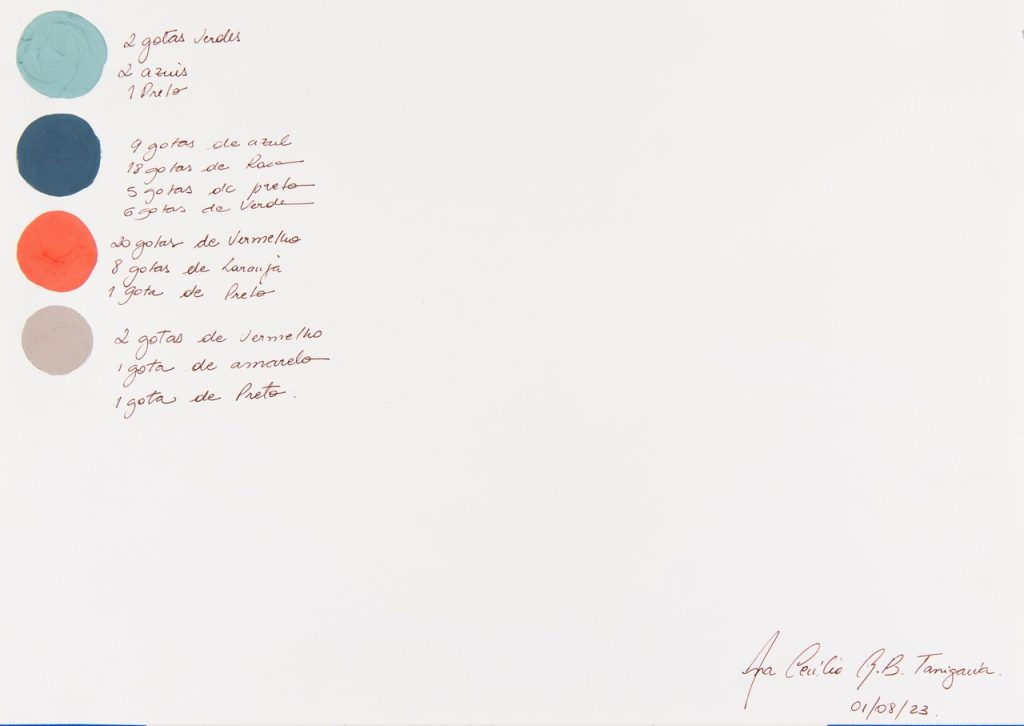 2 gotas verdes
2 azuis
1 Preto
9 gotas de azul
18 gotas de Rosa
5 gotas de preto
6 gotas de Verde
20 gotas de Vermelho
8 gotas de Laranja
1 gota de Preto
2 gotas de vermelho
1 gota de amarelo
1 gota de Preto.
Ana Cecília R.B.
01/08/23.